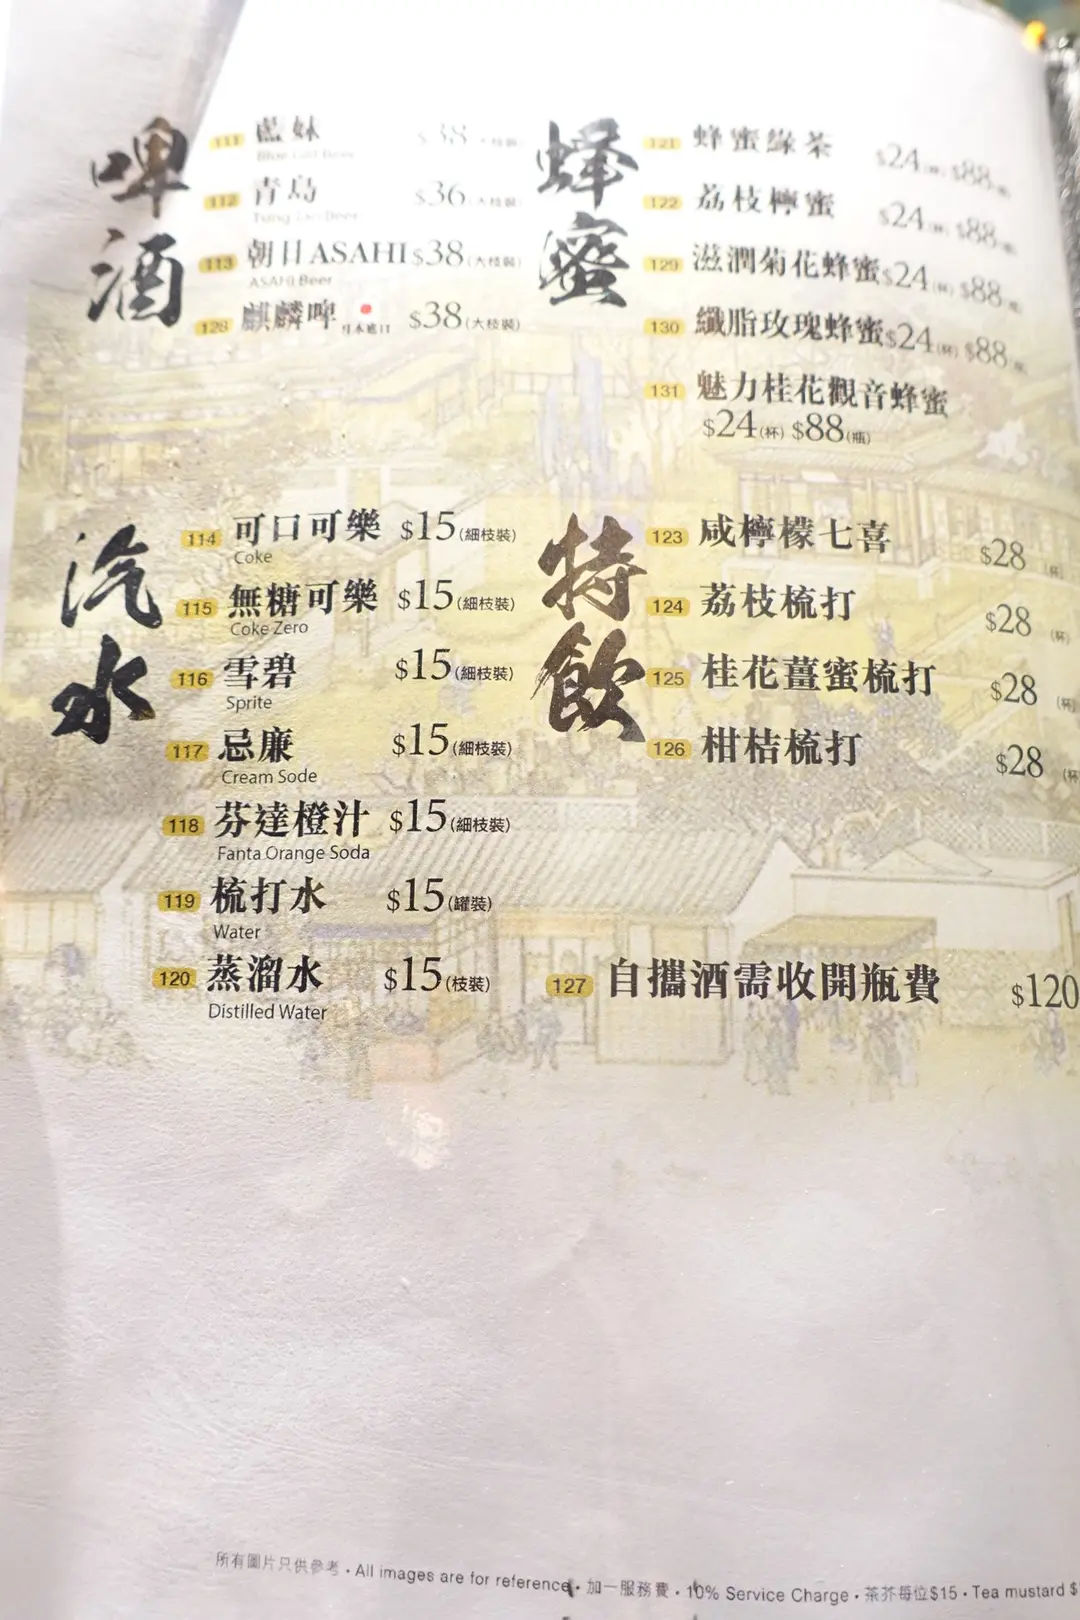 啤酒
111 藍妹 $38
Blue Girl Beer
112 青島 $36(大枝裝)
Tsing Tao Beer
113 朝日ASAHI $38(大枝裝)
ASAHI Beer
128 麒麟啤 日本進口 $38(大枝裝)
蜂蜜
121 蜂蜜綠茶 $24(杯) $88(瓶)
122 荔枝檸蜜 $24(杯) $88(瓶)
129 滋潤菊花蜂蜜 $24(杯) $88(瓶)
130 纖脂玫瑰蜂蜜 $24(杯) $88(瓶)
131 魅力桂花觀音蜂蜜
$24(杯) $88(瓶)
汽水
114 可口可樂 $15(細枝裝)
Coke
115 無糖可樂 $15(細枝裝)
Coke Zero
116 雪碧 $15(細枝裝)
Sprite
117 忌廉 $15(細枝裝)
Cream Sode
118 芬達橙汁 $15(細枝裝)
Fanta Orange Soda
119 梳打水 $15(罐裝)
Water
120 蒸溜水 $15(枝裝)
Distilled Water
特飲
123 咸檸檬七喜 $28(杯)
124 荔枝梳打 $28(杯)
125 桂花薑蜜梳打 $28(杯)
126 柑桔梳打 $28(杯
127 自攜酒需收開瓶費 $120
所有圖片只供參考・All images are for reference・加一服務費・10% Service Charge・茶芥每位$15・Tea mustard $